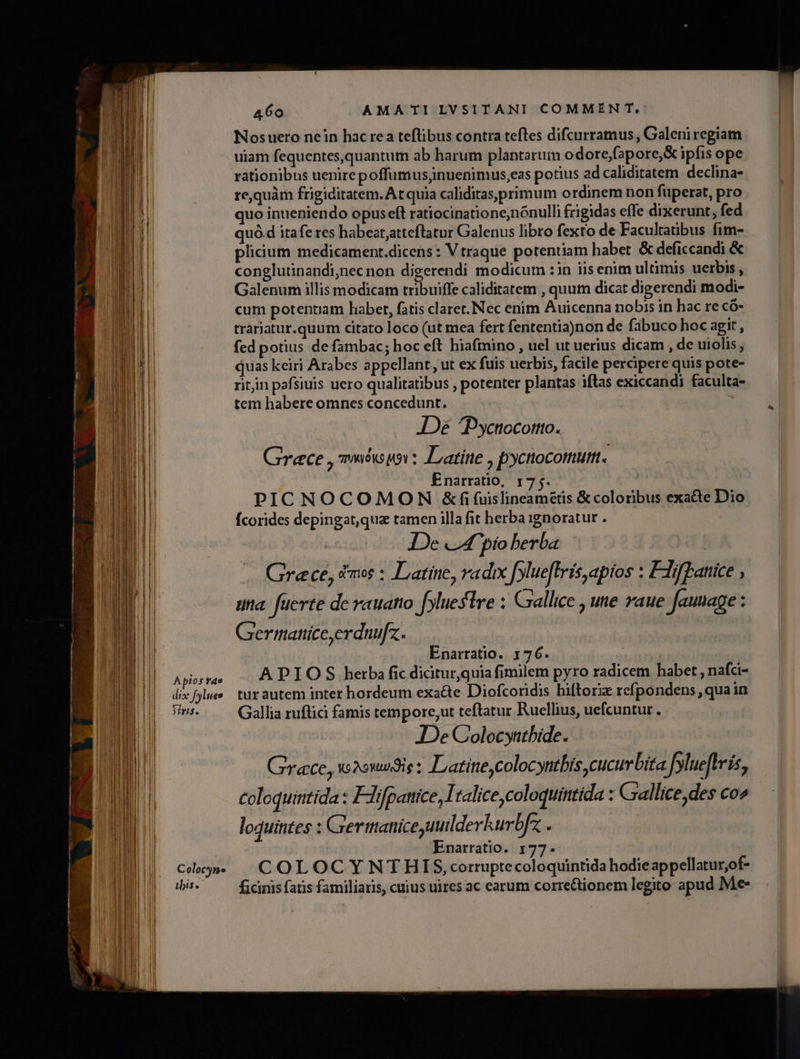 460 AMATI LVSITANI COMMENT.
Nos uero ne in hac re a teſtibus contra teſtes diſcurramus, Galeni regiam
uiam ſequentes, quantum ab harum plantarum odore, ſapore, & ipſis ope
rationibus uenire poſſumus, inuenimus, eas potius ad caliditatem declina-
re, quàm frigiditatem. At quia caliditas, primum ordinem non ſuperat, pro
quo inueniendo opus eſt ratiocinatione, nónulli frigidas eſſe dixerunt, ſed
quò d ita ſe res habeat, atteſtatur Galenus libro ſexto de Facultatibus ſim-
plicium medicament. dicens: Vtraque potentiam habet & deſiccandi &
conglutinandi, nec non digerendi modicum: in iis enim ultimis uerbis,
Galenum illis modicam tribuiſſe caliditatem, quum dicat digerendi modi-
cum potentiam habet, ſatis claret. Nec enim Auicenna nobis in hac re có-
trariatur. quum citato loco (ut mea fert ſententia) non de ſabuco hoc agit,
ſed potius de ſambac; hoc eſt hiaſmino, uel ut uerius dicam, de uiolis,
quas keiri Arabes appellant, ut ex ſuis uerbis, facile percipere quis pote-
rit, in paſsiuis uero qualitatibus, potenter plantas iſtas exiccandi faculta-
tem habere omnes concedunt.
De Pycnocomo.
Græce, πυκνόκομον: Latine, pycnocomum.
Enarratio, 175.
PICNOCOMON & ſi ſuis lineamétis & coloribus exacte Dio
ſcorides depingat, quæ tamen illa ſit herba ignoratur.
De Apio herba
Græce, ἄπιος: Latine, radix ſylueſtris, apios: Hiſpanice,
una ſuerte de rauano ſylueſtre: Gallice, une raue ſauuage:
Germanice, erdnuſz.
Enarratio. 176.
Apios ra-
dix ſylue-
stris.
APIOS herba ſic dicitur, quia ſimilem pyro radicem habet, naſci-
tur autem inter hordeum exacte Dioſcoridis hiſtoriæ reſpondens, qua in
Gallia ruſtici famis tempore, ut teſtatur Ruellius, ueſcuntur.
De Colocynthide.
Græce, κολοκυνθὶς: Latine, colocynthis, cucurbita ſylueſtris,
coloquintida: Hiſpanice, Italice, coloquintida: Gallice, des co-
loquintes: Germanice, uuilder kurbſz.
Enarratio. 177.
Colocyn-
this.
COLOCYNTHIS, corrupte coloquintida hodie appellatur, of-
ficinis ſatis familiaris, cuius uires ac earum correctionem legito apud Me-